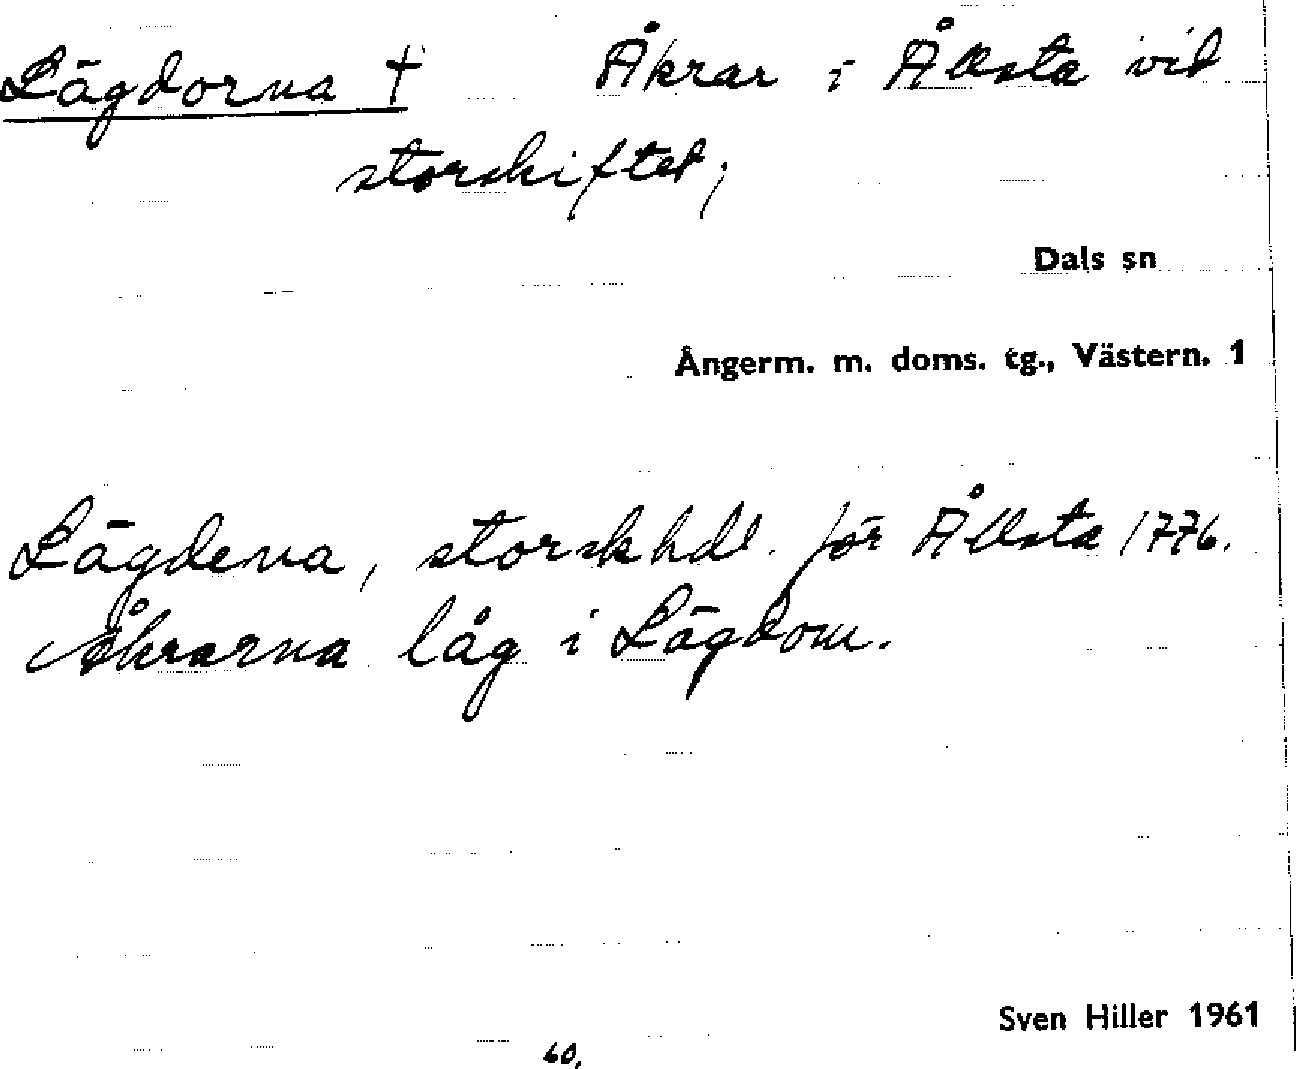 Lägdorna † Åkrar i Ållsta vid
storskiftet;
Dals sn
Ångerm. m. doms. tg., Västern. 1
Lägdena, storskhdl. för Ållsta 1776.
Åkrarna låg i Lägdom.
Sven Hiller 1961
60,